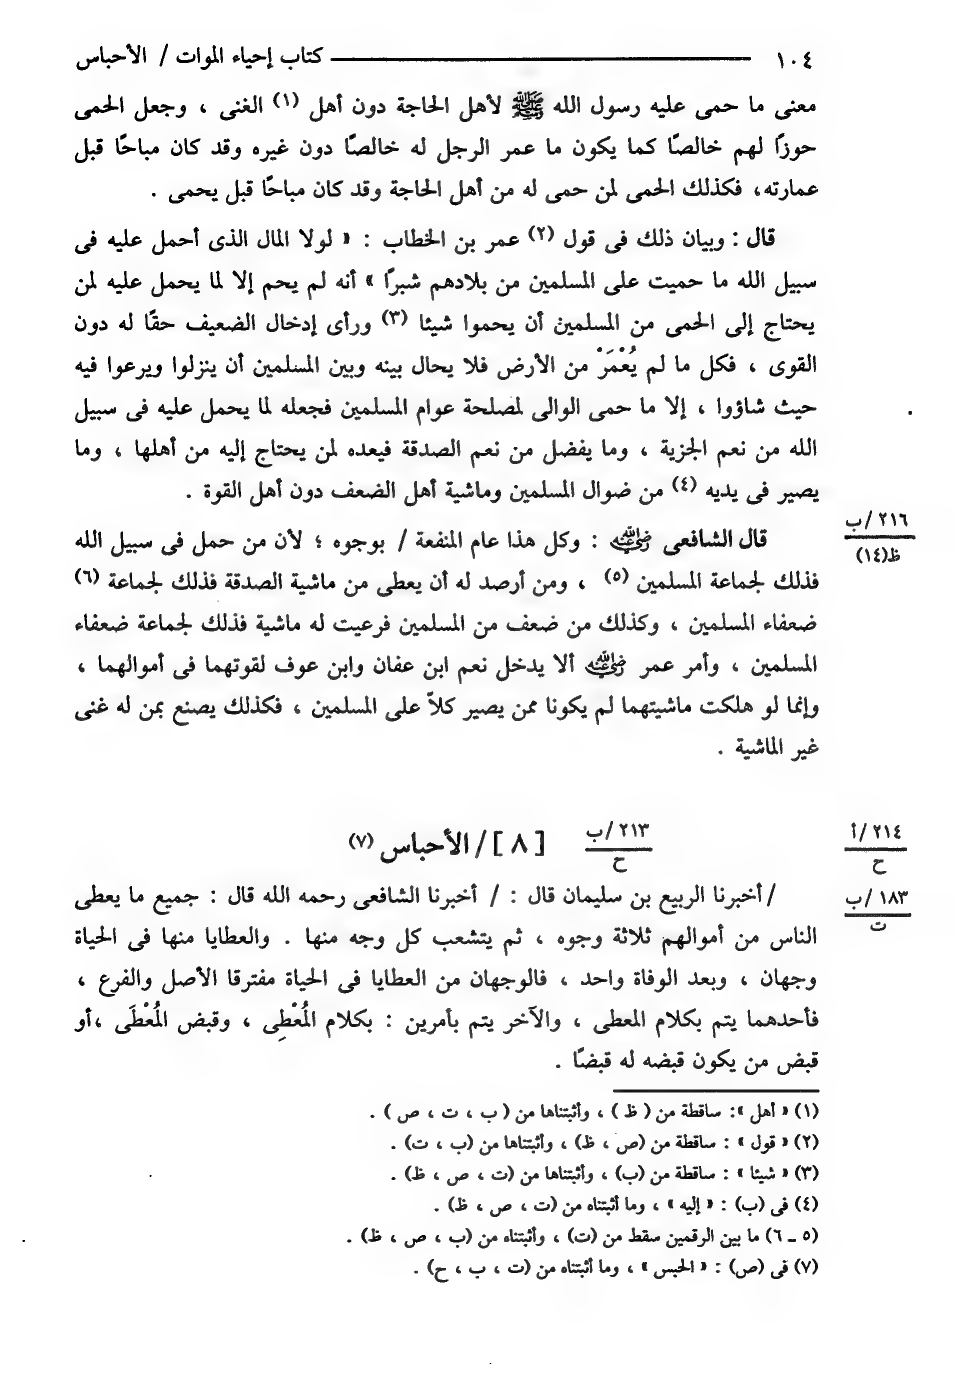 ١٠٤ كتاب إحياء الموات / الأحباس
معنى ما حمى عليه رسول الله ﷺ لأهل الحاجة دون أهل (١) الغنى ، وجعل الحمى
حوزًا لهم خالصًا كما يكون ما عمر الرجل له خالصًا دون غيره وقد كان مباحًا قبل
عمارته، فكذلك الحمى لمن حمى له من أهل الحاجة وقد كان مباحًا قبل يحمى .
قال : وبيان ذلك فى قول (٢) عمر بن الخطاب : « لولا المال الذى أحمل عليه فى
سبيل الله ما حميت على المسلمين من بلادهم شبرًا » أنه لم يحم إلا لما يحمل عليه لمن
يحتاج إلى الحمى من المسلمين أن يحموا شيئا (٣) ورأى إدخال الضعيف حقًا له دون
القوى ، فكل ما لم يُعْمَرْ من الأرض فلا يحال بينه وبين المسلمين أن ينزلوا ويرعوا فيه
حيث شاؤوا ، إلا ما حمى الوالى لمصلحة عوام المسلمين فجعله لما يحمل عليه فى سبيل
الله من نعم الجزية ، وما يفضل من نعم الصدقة فيعده لمن يحتاج إليه من أهلها ، وما
يصير فى يديه (٤) من ضوال المسلمين وماشية أهل الضعف دون أهل القوة .
قال الشافعى رضي الله عنه : وكل هذا عام المنفعة / بوجوه ؛ لأن من حمل فى سبيل الله
٢١٦/ب
ظ(١٤)
فذلك لجماعة المسلمين (٥) ، ومن أرصد له أن يعطى من ماشية الصدقة فذلك لجماعة (٦)
ضعفاء المسلمين ، وكذلك من ضعف من المسلمين فرعيت له ماشية فذلك لجماعة ضعفاء
المسلمين ، وأمر عمر رضي الله عنه ألا يدخل نعم ابن عفان وابن عوف لقوتهما فى أموالهما ،
وإنما لو هلكت ماشيتهما لم يكونا ممن يصير كلاً على المسلمين ، فكذلك يصنع بمن له غنى
غير الماشية .
[ ٨ ] / الأحباس (٧)
٢١٣/ب
ح
٢١٤/أ
ح
/ أخبرنا الربيع بن سليمان قال : / أخبرنا الشافعى رحمه الله قال : جميع ما يعطى
١٨٣/ب
ت
الناس من أموالهم ثلاثة وجوه ، ثم يتشعب كل وجه منها . والعطايا منها فى الحياة
وجهان ، وبعد الوفاة واحد ، فالوجهان من العطايا فى الحياة مفترقا الأصل والفرع ،
فأحدهما يتم بكلام المعطى ، والآخر يتم بأمرين : بكلام المُعْطِى ، وقبض المُعْطَى ،أو
قبض من يكون قبضه له قبضًا .
(١) « أهل »: ساقطة من ( ظ ) ، وأثبتناها من ( ب ، ت ، ص ) .
(٢) « قول » : ساقطة من (ص ، ظ) ، وأثبتناها من (ب ، ت) .
(٣) « شيئا » : ساقطة من (ب) ، وأثبتناها من (ت ، ص ، ظ) .
(٤) فى (ب) : « إليه » ، وما أثبتناه من (ت ، ص ، ظ) .
(٥ ـ ٦) ما بين الرقمين سقط من (ت) ، وأثبتناه من (ب ، ص ، ظ) .
(٧) فى (ص) : « الحبس » ، وما أثبتناه من (ت ، ب ، ح) .